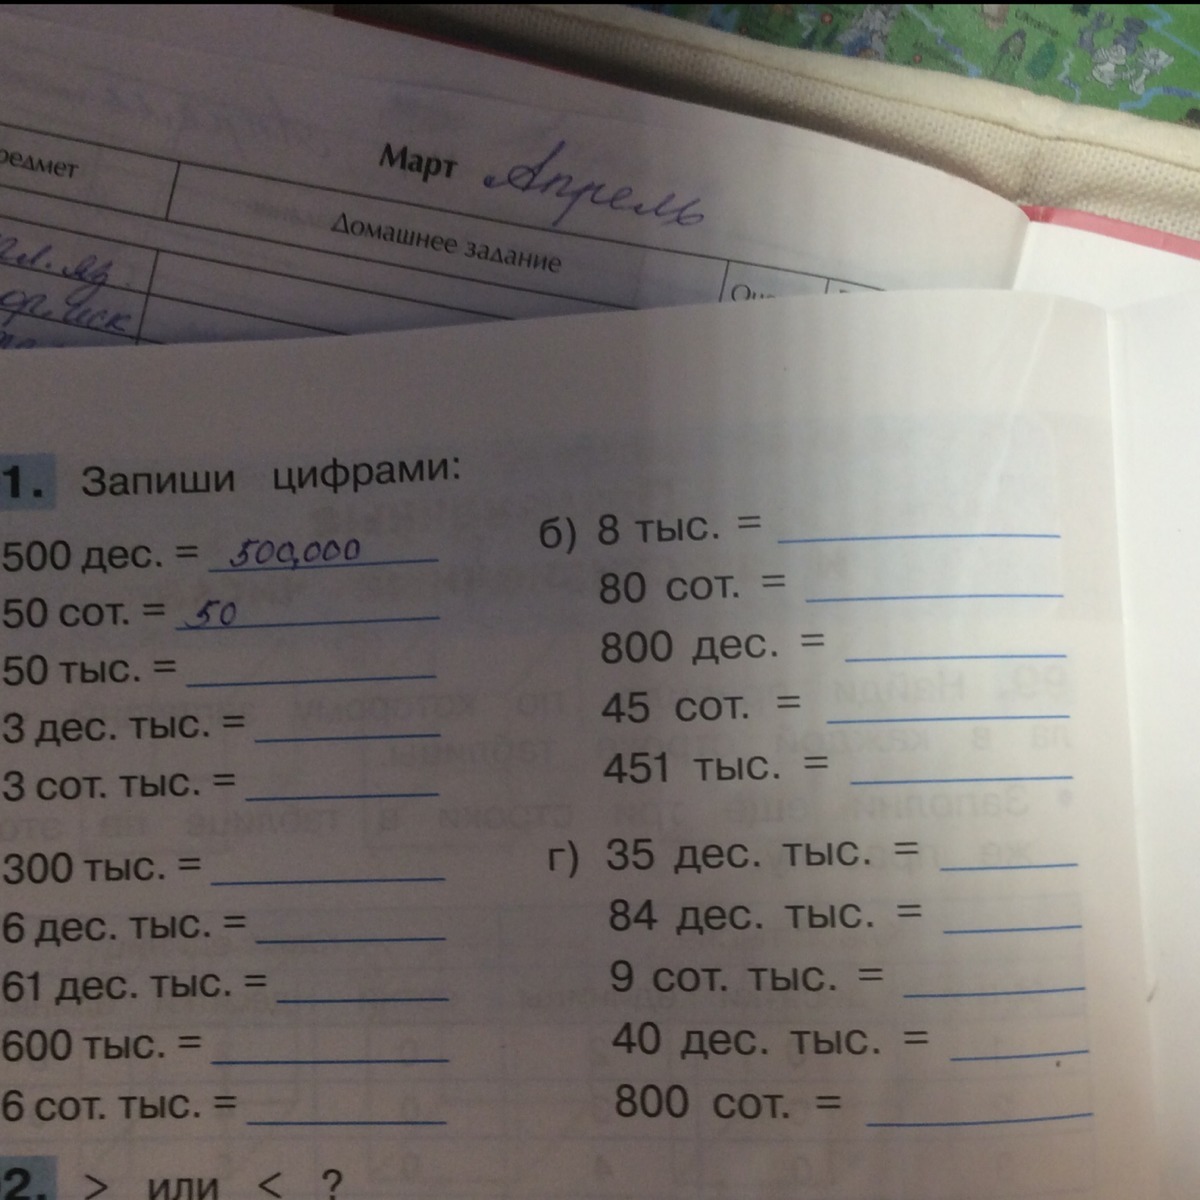 Март Апрель
Домашнее задание
1. Запиши цифрами:
500 дес. = 500,000
50 сот. = 50
50 тыс. =
3 дес. тыс. =
3 сот. тыс. =
б) 8 тыс. =
80 сот. =
800 дес. =
45 сот. =
451 тыс. =
300 тыс. =
6 дес. тыс. =
61 дес. тыс. =
600 тыс. =
6 сот. тыс. =
г) 35 дес. тыс. =
84 дес. тыс. =
9 сот. тыс. =
40 дес. тыс. =
800 сот. =
2. > или < ?